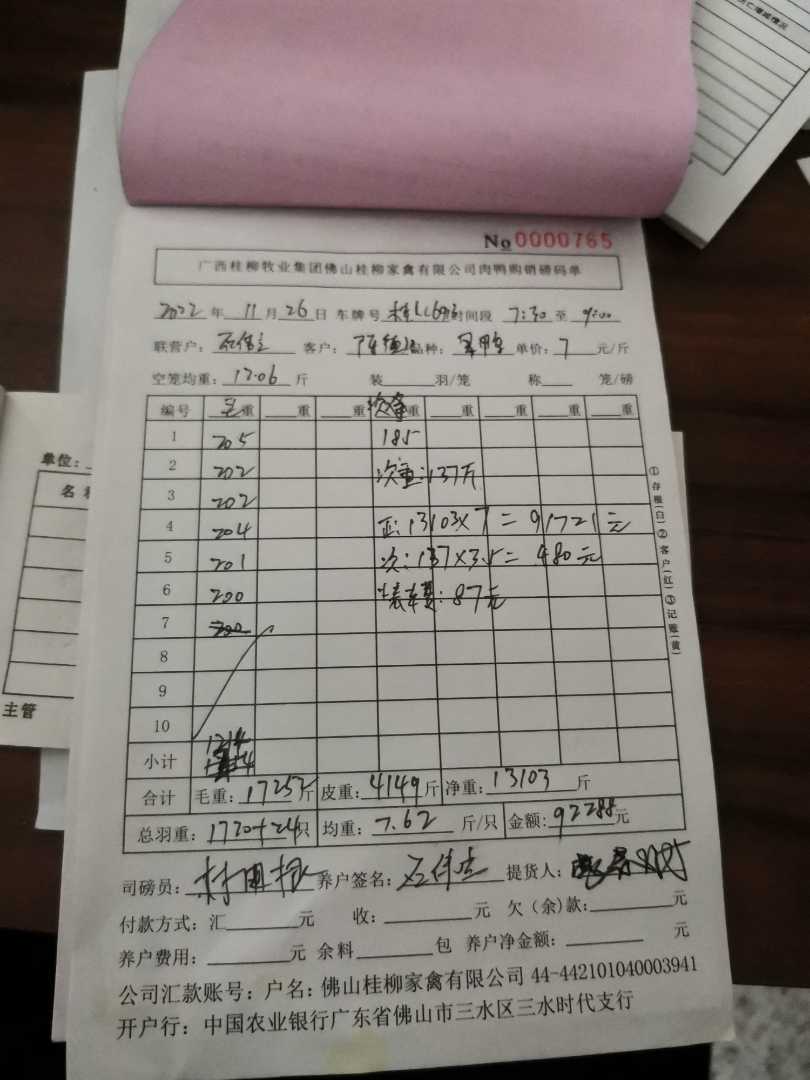 No 0000765
广西桂柳牧业集团佛山桂柳家禽有限公司肉鸭购销磅码单
2022年 11月 26日 车牌号 时间段 7:30 至 9:00
联营户： 客户： 品种： 单价：7 元/斤
空笼均重：17.06 斤 装 羽/笼 称 笼/磅
编号 毛重 重 重 重 重 重 重 重
1 205 185
2 202 次重：137斤
3 202
4 204 正：13103×7=91721元
5 201 次：137×3.5=480元
6 200 装车费：87元
7
8
9
10
小计 1214
合计 毛重：17252斤 皮重：4149斤 净重：13103斤
总羽重：1720+24只 均重：7.62斤/只 金额：92288元
司磅员： 养户签名： 提货人：
付款方式：汇 元 收： 元 欠（余）款： 元
养户费用： 元 余料 包 养户净金额： 元
公司汇款账号：户名：佛山桂柳家禽有限公司 44-442101040003941
开户行：中国农业银行广东省佛山市三水区三水时代支行
①存根(白)②客户(红)③记账(黄)
单位：
名
主管